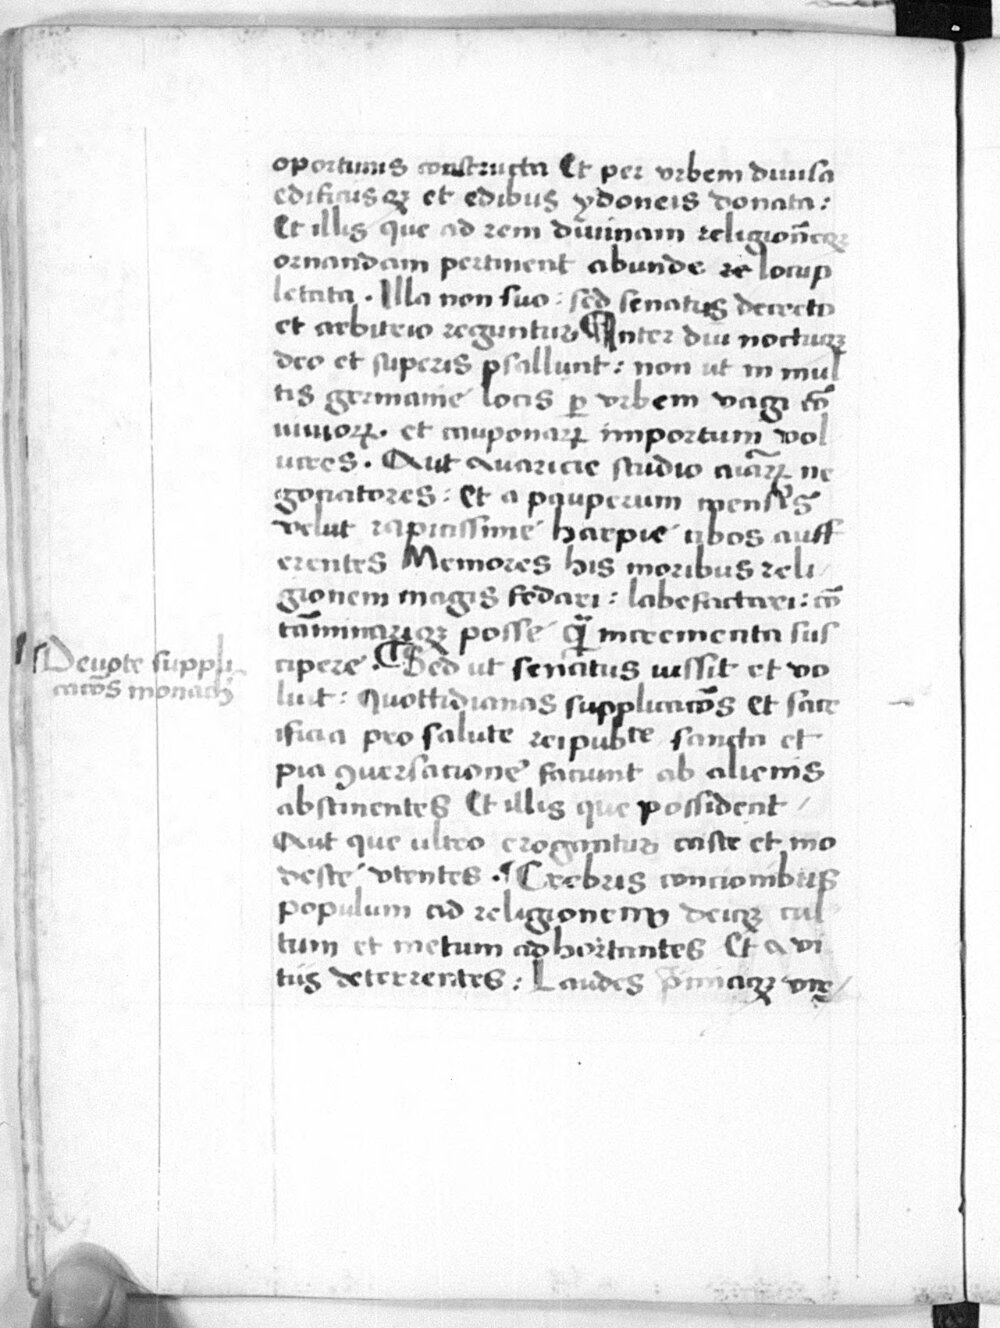 oportunis constructa Et per vrbem diuisa
edificiisqꝫ et edibus ydoneis donata:
Et illis que ad rem diuinam religionēqꝫ
ornandam pertinent abunde re locup
letata. Illa non suo: sed senatus decreto
et arbitrio reguntur ¶ Inter diu noctuqꝫ
deo et superis psallunt: non ut in mul
tis germanie locis ꝑ vrbem vagi cō
uiuioꝝ. et cauponaꝝ importum vol
ucres. Aut auaricie studio
gociatores: Et a pauperum mensis
velut rapicissime harpie cibos auff
erentes Memores his moribus reli
gionem magis fedari: labefactari: cō
tāminariqꝫ posse q̄ incrementa sus
cipere. ¶ Sed ut senatus iussit et vo
luit: Quottidianas supplicacōs Et sacr
ificia pro salute reipubᵗᵉ sancta et
pia ꝯuersacione faciunt ab alienis
abstinentes Et illis que possident
Aut que ultro erogantur caste et mo
deste vtentes. ¶ Crebris concionibus
populum ad religionem deiqꝫ cul
tum et metum adhortantes Et a vi
tiis deterrentes: Laudes
Deuote suppli
cacōs monach